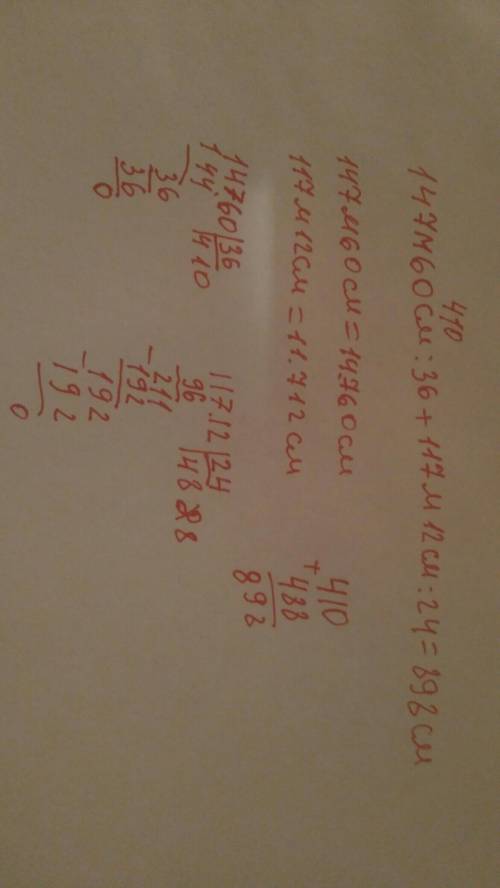 410
147м60см:36+117м12см:24=898см
147м60см=14760см
117м12см=11.712см
14760|36
144 |410
36
36
0
117.12|24
96 |488
-211
192
-192
192
0
410
+488
898